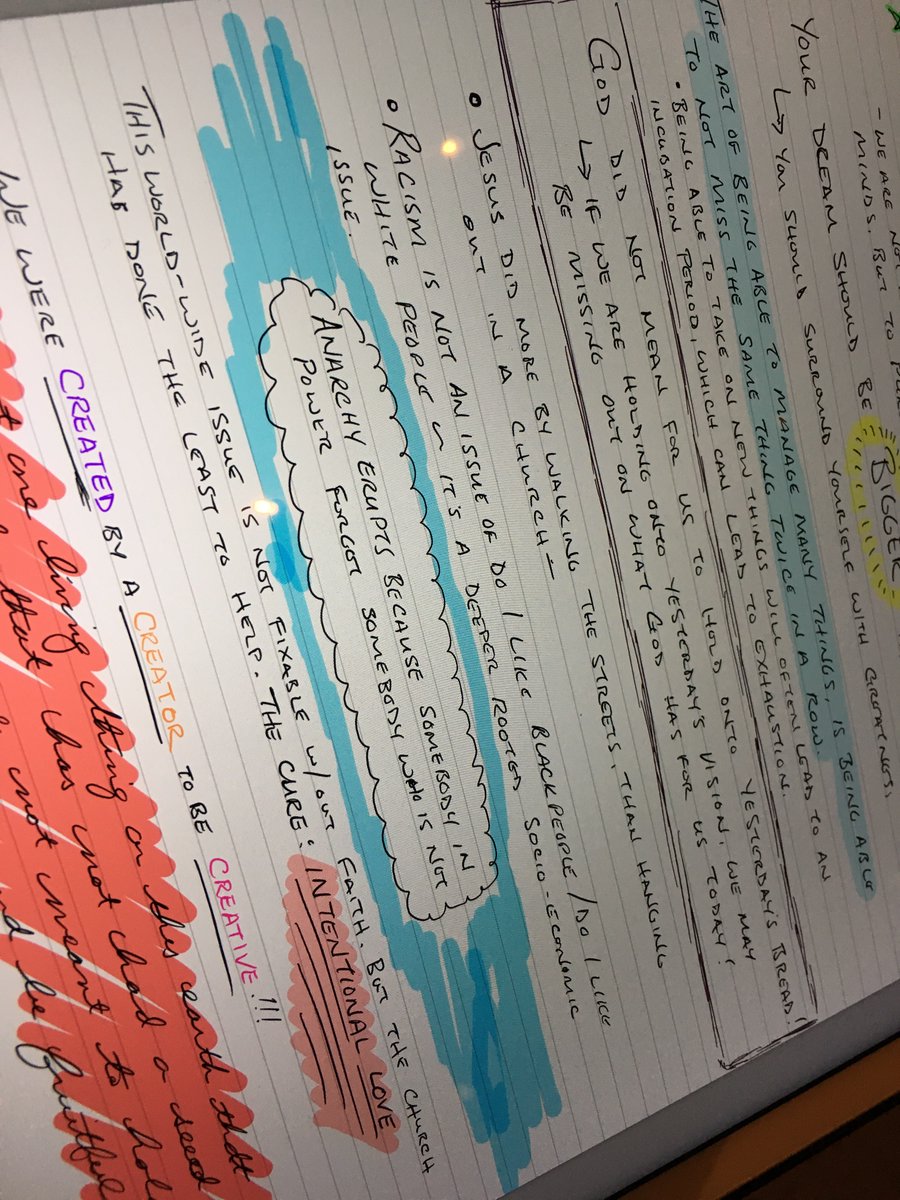 - WE ARE NOT TO
MINDS. BUT
YOUR DREAM SHOULD BE BIGGER -
↳ YOU SHOULD SURROUND YOURSELF WITH GREATNESS,
THE ART OF BEING ABLE TO MANAGE MANY THINGS, IS BEING ABLE
TO NOT MISS THE SAME THING TWICE IN A ROW.
• BEING ABLE TO TAKE ON NEW THINGS WILL OFTEN LEAD TO AN
INCUBATION PERIOD, WHICH CAN LEAD TO EXHAUSTION.
GOD DID NOT MEAN FOR US TO HOLD ONTO YESTERDAY'S BREAD!
↳ IF WE ARE HOLDING ONTO YESTERDAY'S VISION, WE MAY
BE MISSING OUT ON WHAT GOD HAS FOR US TODAY!
• JESUS DID MORE BY WALKING THE STREETS, THAN HANGING
OUT IN A CHURCH -
• RACISM IS NOT AN ISSUE OF DO I LIKE BLACK PEOPLE / DO I LIKE
WHITE PEOPLE ~ IT'S A DEEPER ROOTED SOCIO-ECONOMIC
ISSUE.
ANARCHY ERUPTS BECAUSE SOMEBODY IN
POWER FORGOT SOMEBODY WHO IS NOT
THIS WORLD-WIDE ISSUE IS NOT FIXABLE W/OUT FAITH. BUT THE CHURCH
HAS DONE THE LEAST TO HELP. THE CURE: INTENTIONAL LOVE
WE WERE CREATED BY A CREATOR TO BE CREATIVE!!!
not one living thing on this earth that
that has not had a seed
not meant to hol
and be fruitful